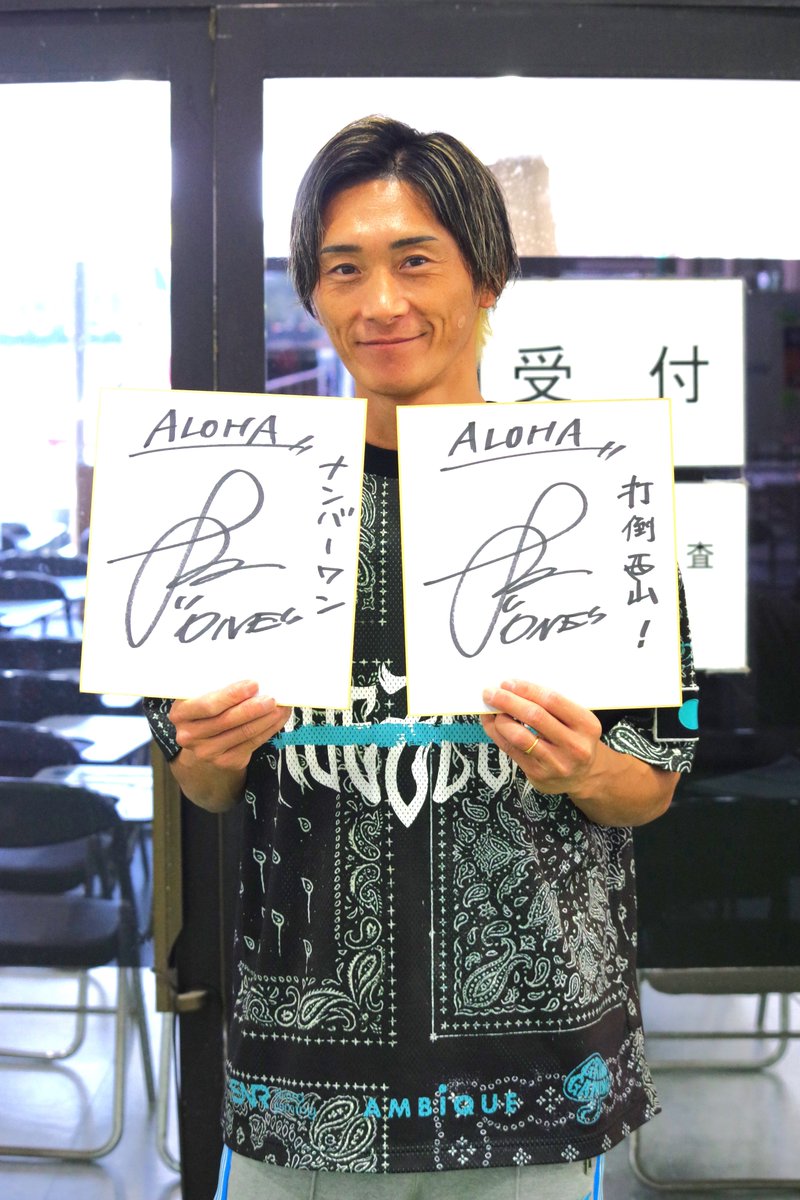 受付
査
ALOHA
ナンバーワン
ONE
ALOHA
打倒西山!
ONE
AMBiQUE